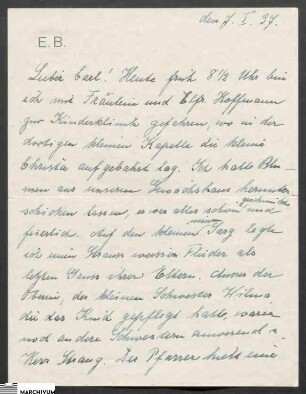 den 7. I. 37.
E. B.
Lieber Carl! Heute früh 8 1/2 Uhr bin
ich mit Fräulein und Elfr. Hoffmann
zur Kinderklinik gefahren, wo in der
dortigen kleinen Kapelle die kleine
Christa aufgebahrt lag. Ich hatte Blu-
men aus unserem Gewächshaus herunter
schicken lassen, es war alles schön geschmückt und
feierlich. Auf den kleinen Sarg legte
ich einen Strauss weissen Flieder als
letzten Gruss ihrer Eltern. Ausser der
Oberin, der kleinen Schwester Wilma
die das Kind gepflegt hatte, waren
noch andere Schwestern anwesend u.
Herr Strang. Der Pfarrer hielt eine
MARCHIVUM